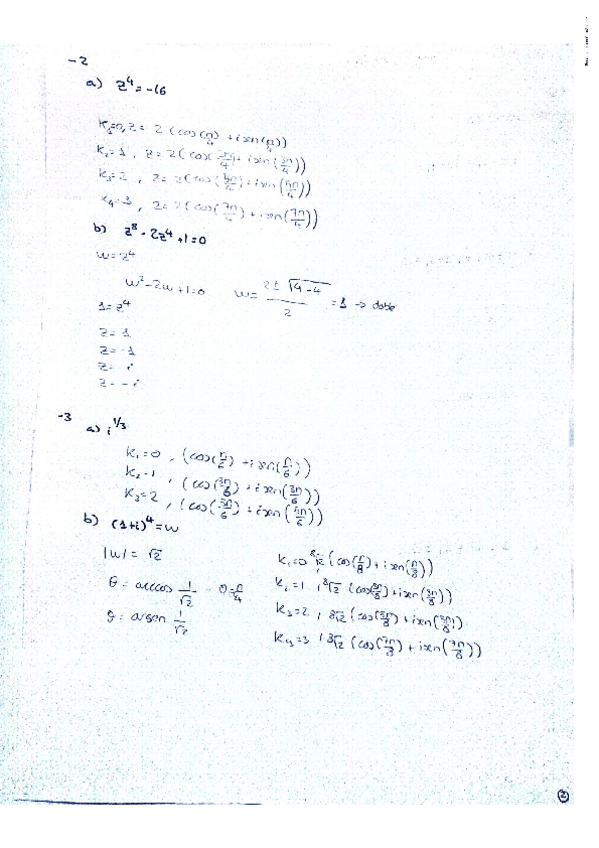 -2
a) z⁴=-16
K₁=0, z= 2 (cos(π/4) + i sen(π/4))
K₂=1, z= 2 (cos(3π/4) + i sen(3π/4))
K₃=2, z= 2 (cos(5π/4) + i sen(5π/4))
K₄=3, z= 2 (cos(7π/4) + i sen(7π/4))
b) z⁸-2z⁴+1=0
w=z⁴
w²-2w+1=0 w= (2±√(4-4))/2 = 1 → doble
1=z⁴
z= 1
z= -1
z= i
z= -i
-3
a) i^(1/3)
K₁=0, (cos(π/6) + i sen(π/6))
K₂=1, (cos(3π/6) + i sen(3π/6))
K₃=2, (cos(5π/6) + i sen(5π/6))
b) (1+i)⁴=w
|w|= √2
θ= arccos 1/√2 θ=π/4
θ= arcsen 1/√2
K₁=0, ⁸√2 (cos(π/8) + i sen(π/8))
K₂=1, ⁸√2 (cos(3π/8) + i sen(3π/8))
K₃=2, ⁸√2 (cos(5π/8) + i sen(5π/8))
K₄=3, ⁸√2 (cos(7π/8) + i sen(7π/8))
2